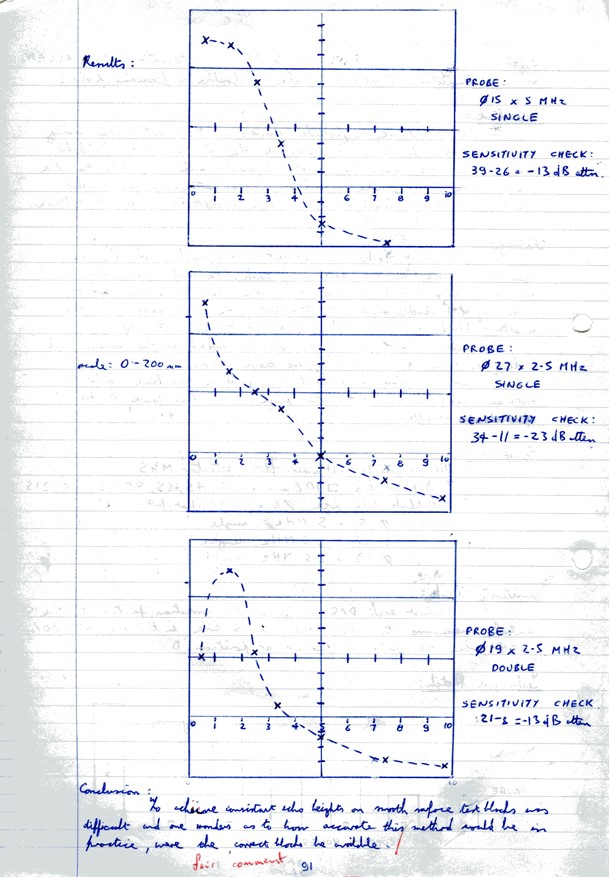 Results:
PROBE:
Ø15 x 5 MHz
SINGLE
SENSITIVITY CHECK:
39-26 = -13 dB atten.
0 1 2 3 4 5 6 7 8 9 10
scale: 0-200 mm
PROBE:
Ø 27 x 2-5 MHz
SINGLE
SENSITIVITY CHECK:
34-11 = -23 dB atten
0 1 2 3 4 5 6 7 8 9 10
PROBE:
Ø19 x 2-5 MHz
DOUBLE
SENSITIVITY CHECK
= -13 dB atten
0 1 2 3 4 5 6 7 8 9 10
Conclusion:
To achieve consistent echo heights on smooth surface test blocks was
difficult and one wonders as to how accurate this method would be in
practice, were the correct blocks be available.
fair comment
91